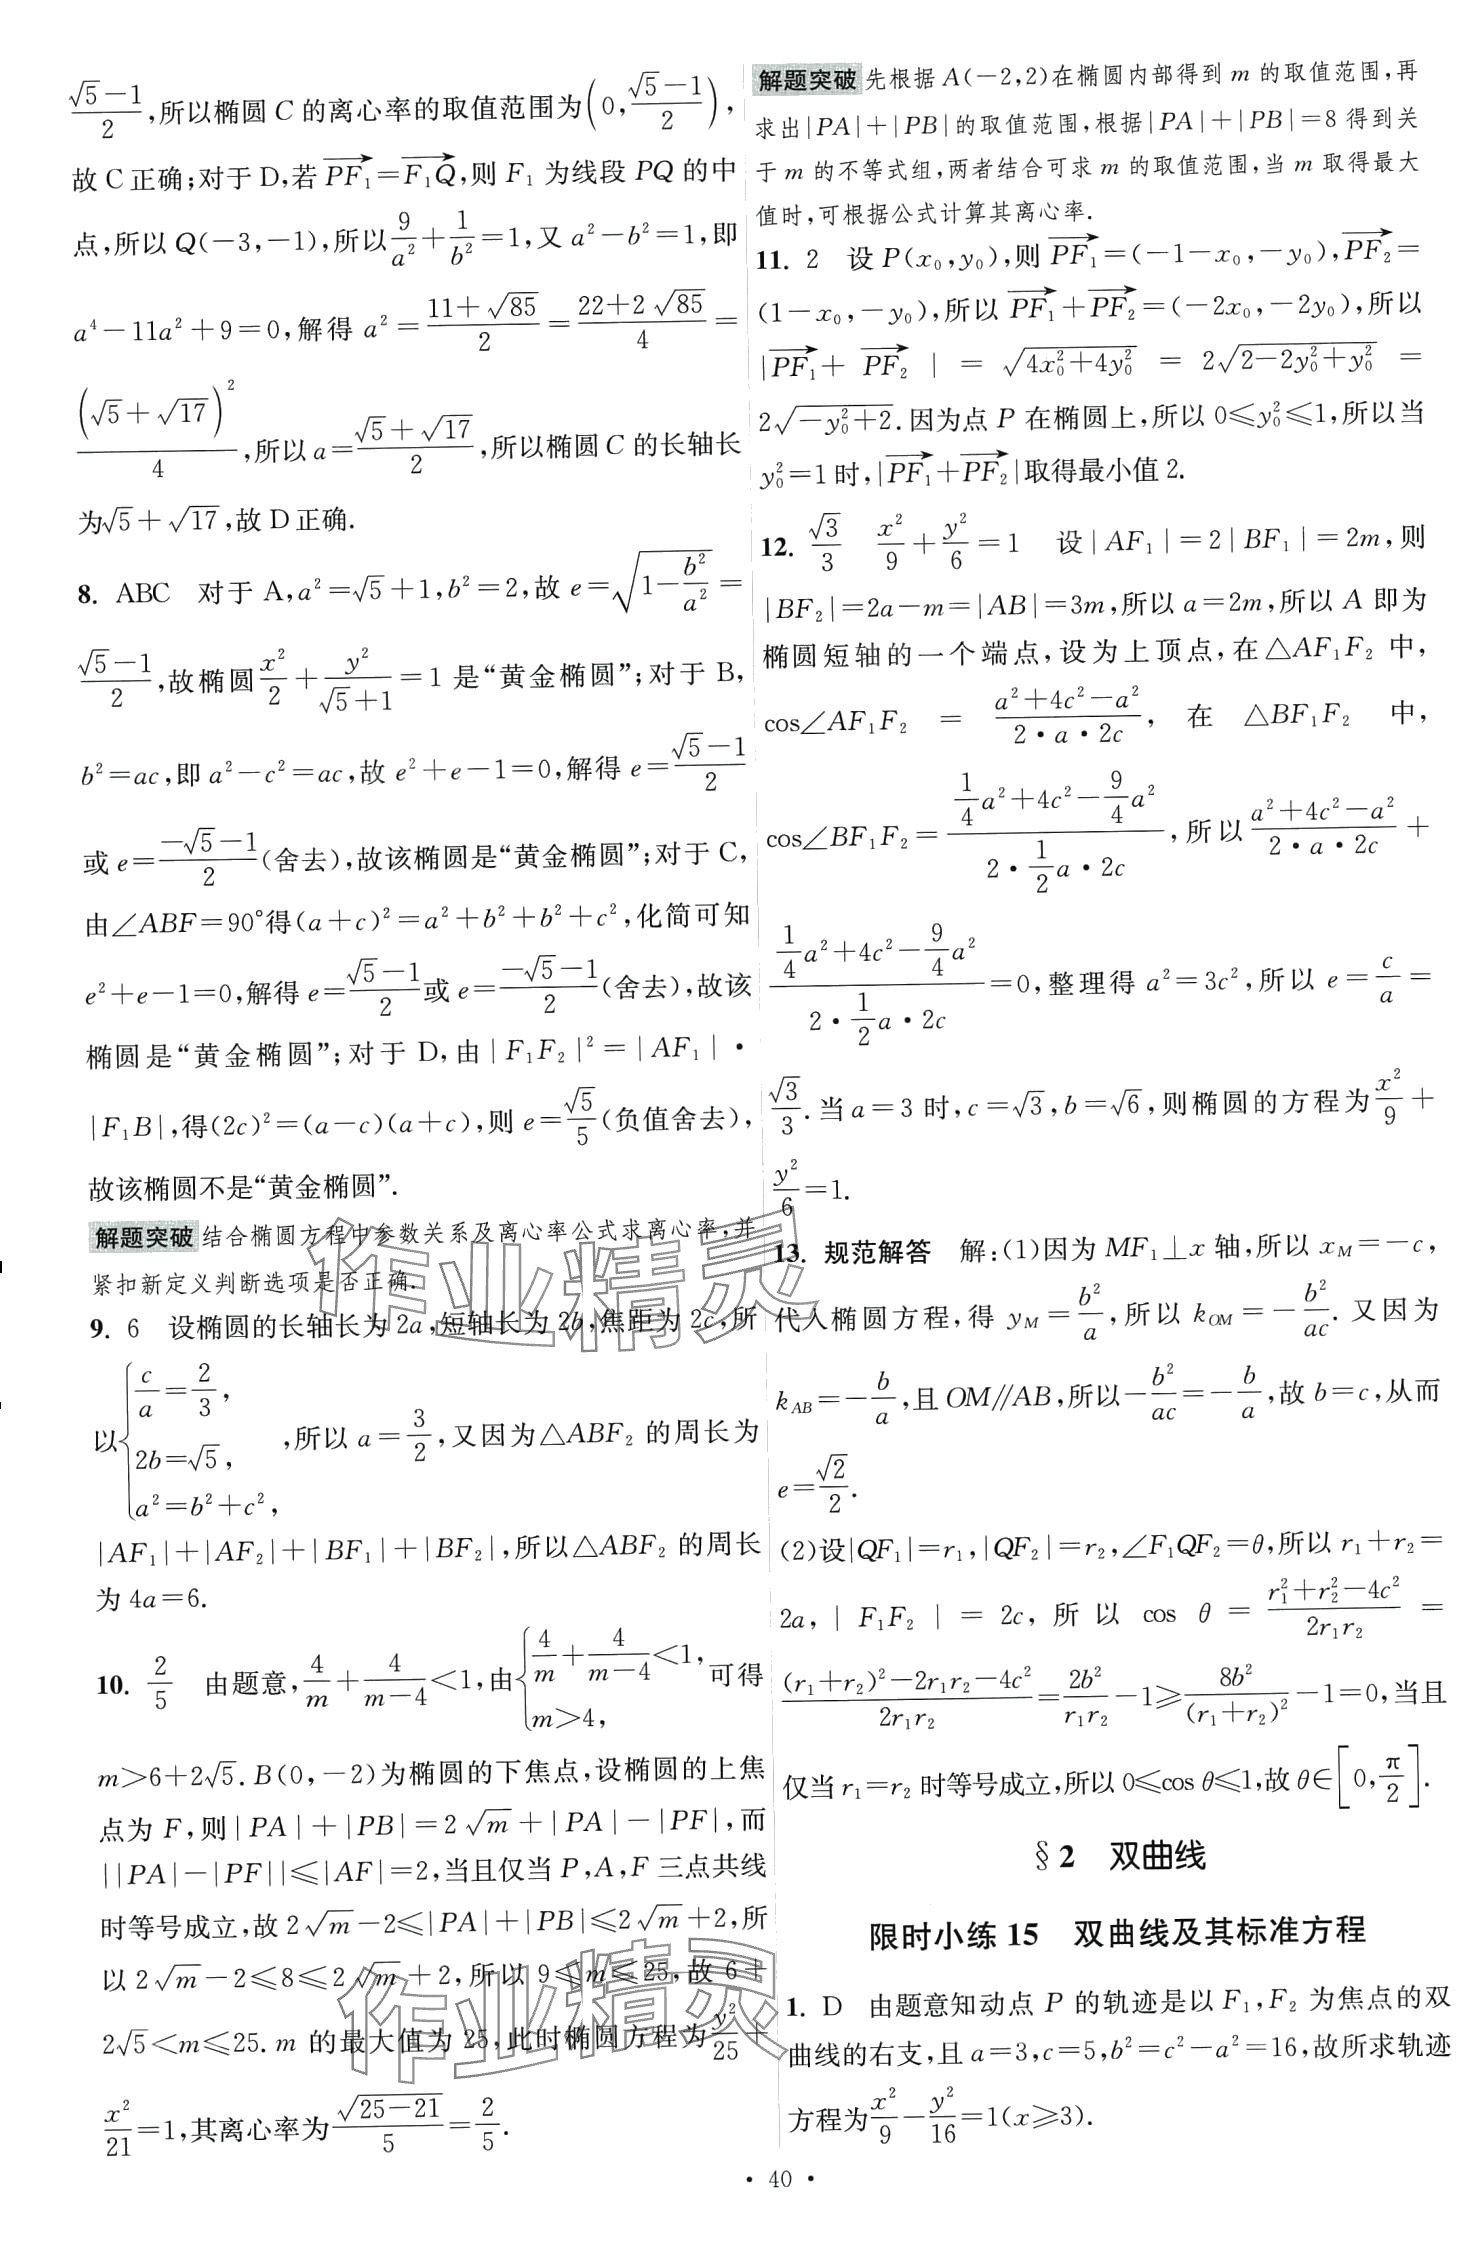 $\frac{\sqrt{5}-1}{2}$,所以椭圆 C 的离心率的取值范围为$\left(0,\frac{\sqrt{5}-1}{2}\right)$,
故 C 正确;对于 D,若 $\overrightarrow{PF_1}=\overrightarrow{F_1Q}$,则 $F_1$ 为线段 PQ 的中
点,所以 Q(−3,−1),所以$\frac{9}{a^2}+\frac{1}{b^2}=1$,又 $a^2-b^2=1$,即
$a^4-11a^2+9=0$,解得 $a^2=\frac{11+\sqrt{85}}{2}=\frac{22+2\sqrt{85}}{4}=$
$\frac{(\sqrt{5}+\sqrt{17})^2}{4}$,所以 $a=\frac{\sqrt{5}+\sqrt{17}}{2}$,所以椭圆 C 的长轴长
为$\sqrt{5}+\sqrt{17}$,故 D 正确.
8. ABC 对于 A,$a^2=\sqrt{5}+1,b^2=2$,故 $e=\sqrt{1-\frac{b^2}{a^2}}=$
$\frac{\sqrt{5}-1}{2}$,故椭圆$\frac{x^2}{2}+\frac{y^2}{\sqrt{5}+1}=1$ 是“黄金椭圆”;对于 B,
$b^2=ac$,即 $a^2-c^2=ac$,故 $e^2+e-1=0$,解得 $e=\frac{\sqrt{5}-1}{2}$
或 $e=\frac{-\sqrt{5}-1}{2}$(舍去),故该椭圆是“黄金椭圆”;对于 C,
由∠ABF=90°得$(a+c)^2=a^2+b^2+b^2+c^2$,化简可知
$e^2+e-1=0$,解得 $e=\frac{\sqrt{5}-1}{2}$或 $e=\frac{-\sqrt{5}-1}{2}$(舍去),故该
椭圆是“黄金椭圆”;对于 D,由 $|F_1F_2|^2=|AF_1|\cdot$
$|F_1B|$,得$(2c)^2=(a-c)(a+c)$,则 $e=\frac{\sqrt{5}}{5}$(负值舍去),
故该椭圆不是“黄金椭圆”.
解题突破 结合椭圆方程中参数关系及离心率公式求离心率,并
紧扣新定义判断选项是否正确.
9. 6 设椭圆的长轴长为 2a,短轴长为 2b,焦距为 2c,所
以$\begin{cases}\frac{c}{a}=\frac{2}{3},\\2b=\sqrt{5},\\a^2=b^2+c^2,\end{cases}$,所以 $a=\frac{3}{2}$,又因为△ABF$_2$ 的周长为
$|AF_1|+|AF_2|+|BF_1|+|BF_2|$,所以△ABF$_2$ 的周长
为 4a=6.
10. $\frac{2}{5}$ 由题意,$\frac{4}{m}+\frac{4}{m-4}<1$,由$\begin{cases}\frac{4}{m}+\frac{4}{m-4}<1,\\m>4,\end{cases}$可得
$m>6+2\sqrt{5}$.B(0,−2)为椭圆的下焦点,设椭圆的上焦
点为 F,则$|PA|+|PB|=2\sqrt{m}+|PA|-|PF|$,而
$||PA|-|PF||\leqslant|AF|=2$,当且仅当 P,A,F 三点共线
时等号成立,故 $2\sqrt{m}-2\leqslant|PA|+|PB|\leqslant2\sqrt{m}+2$,所
以 $2\sqrt{m}-2\leqslant8\leqslant2\sqrt{m}+2$,所以 $9\leqslant m\leqslant25$,故 6+
$2\sqrt{5}<m\leqslant25$.m 的最大值为 25,此时椭圆方程为$\frac{y^2}{25}+$
$\frac{x^2}{21}=1$,其离心率为$\frac{\sqrt{25-21}}{5}=\frac{2}{5}$.
解题突破 先根据 A(−2,2)在椭圆内部得到 m 的取值范围,再
求出|PA|+|PB|的取值范围,根据|PA|+|PB|=8 得到关
于 m 的不等式组,两者结合可求 m 的取值范围,当 m 取得最大
值时,可根据公式计算其离心率.
11. 2 设 $P(x_0,y_0)$,则 $\overrightarrow{PF_1}=(-1-x_0,-y_0),\overrightarrow{PF_2}=$
$(1-x_0,-y_0)$,所以 $\overrightarrow{PF_1}+\overrightarrow{PF_2}=(-2x_0,-2y_0)$,所以
$|\overrightarrow{PF_1}+\overrightarrow{PF_2}|=\sqrt{4x_0^2+4y_0^2}=2\sqrt{2-2y_0^2+y_0^2}=$
$2\sqrt{-y_0^2+2}$.因为点 P 在椭圆上,所以 $0\leqslant y_0^2\leqslant1$,所以当
$y_0^2=1$ 时,$|\overrightarrow{PF_1}+\overrightarrow{PF_2}|$取得最小值 2.
12. $\frac{\sqrt{3}}{3}$ $\frac{x^2}{9}+\frac{y^2}{6}=1$ 设$|AF_1|=2|BF_1|=2m$,则
$|BF_2|=2a-m=|AB|=3m$,所以 a=2m,所以 A 即为
椭圆短轴的一个端点,设为上顶点,在△AF$_1$F$_2$ 中,
$\cos∠AF_1F_2=\frac{a^2+4c^2-a^2}{2\cdot a\cdot2c}$,在△BF$_1$F$_2$ 中,
$\cos∠BF_1F_2=\frac{\frac{1}{4}a^2+4c^2-\frac{9}{4}a^2}{2\cdot\frac{1}{2}a\cdot2c}$,所以$\frac{a^2+4c^2-a^2}{2\cdot a\cdot2c}+$
$\frac{\frac{1}{4}a^2+4c^2-\frac{9}{4}a^2}{2\cdot\frac{1}{2}a\cdot2c}=0$,整理得 $a^2=3c^2$,所以 $e=\frac{c}{a}=$
$\frac{\sqrt{3}}{3}$.当 a=3 时,$c=\sqrt{3},b=\sqrt{6}$,则椭圆的方程为$\frac{x^2}{9}+$
$\frac{y^2}{6}=1$.
13. 规范解答 解:(1)因为 $MF_1⊥x$ 轴,所以 $x_M=-c$,
代入椭圆方程,得 $y_M=\frac{b^2}{a}$,所以 $k_{OM}=-\frac{b^2}{ac}$.又因为
$k_{AB}=-\frac{b}{a}$,且 OM∥AB,所以$-\frac{b^2}{ac}=-\frac{b}{a}$,故 b=c,从而
$e=\frac{\sqrt{2}}{2}$.
(2)设$|QF_1|=r_1,|QF_2|=r_2,∠F_1QF_2=θ$,所以 $r_1+r_2=$
$2a,|F_1F_2|=2c$,所以 $\cos θ=\frac{r_1^2+r_2^2-4c^2}{2r_1r_2}=$
$\frac{(r_1+r_2)^2-2r_1r_2-4c^2}{2r_1r_2}=\frac{2b^2}{r_1r_2}-1\geqslant\frac{8b^2}{(r_1+r_2)^2}-1=0$,当且
仅当 $r_1=r_2$ 时等号成立,所以 $0\leqslant\cos θ\leqslant1$,故 $θ∈\left[0,\frac{π}{2}\right]$.
§2 双曲线
限时小练 15 双曲线及其标准方程
1. D 由题意知动点 P 的轨迹是以 $F_1,F_2$ 为焦点的双
曲线的右支,且 a=3,c=5,$b^2=c^2-a^2=16$,故所求轨迹
方程为$\frac{x^2}{9}-\frac{y^2}{16}=1(x\geqslant3)$.
· 40 ·
作业精灵
作业精灵